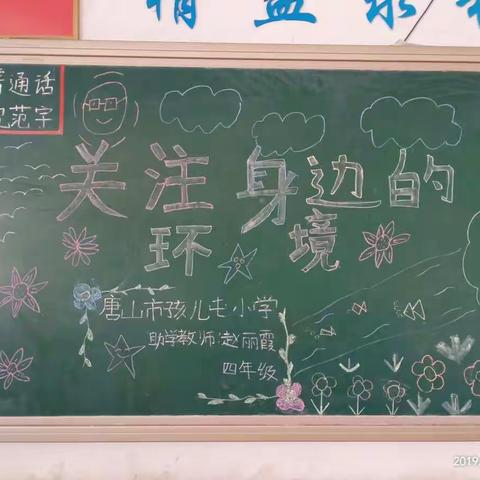 精益求
普通话
规范字
关注身边的
环境
唐山市孩儿屯小学
助学教师:赵丽霞
四年级
2019